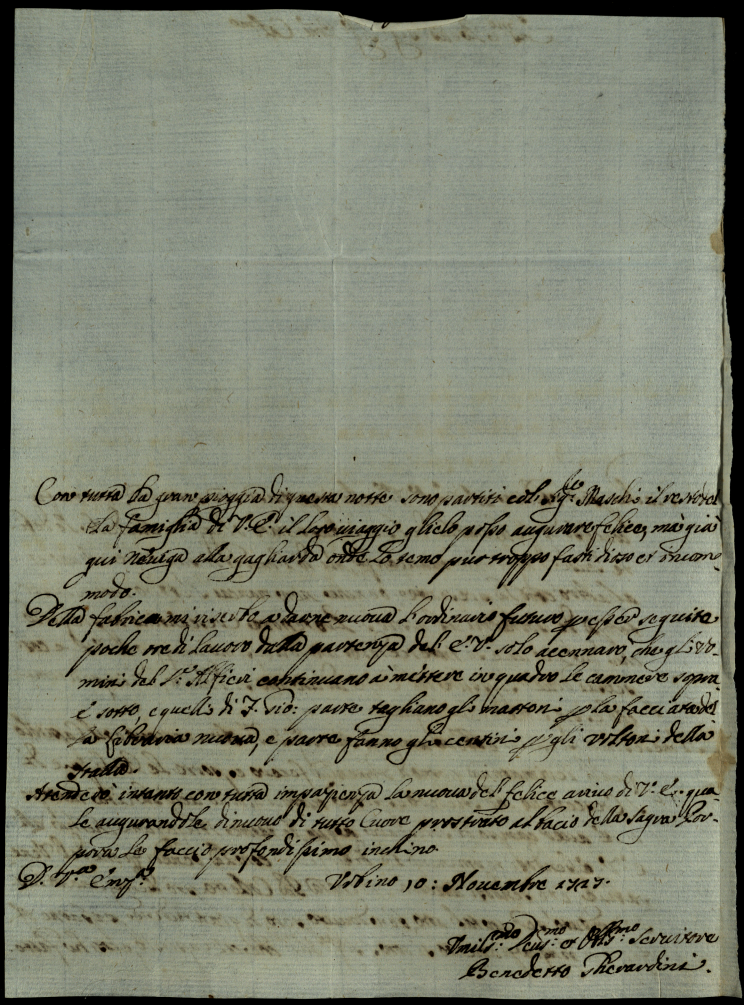 Con tutta la gran pioggia di questa notte sono partiti col Sig.re Maschi il resto del
la famiglia di V. E. il loro viaggio glielo posso augurare felice, mà già
qui neviga alla gagliarda onde Lo temo pur troppo fastidioso et incom-
modo.
Della fabrica mi riserbo a darne nuova l'ordinario futuro p esser seguite
poche ore di lavoro dalla partenza del E. V. solo accennarò, che gli vo-
mini del S.r Alfieri continuano à mettere in quadro le cammere sopra
è sotto, e quelli di F. Gio: parte tagliano gli mattoni p la facciata del
la libraria nuova, e parte fanno gli centini p gli voltoni della
stalla.
Attenderò intanto con tutta impazienza la nuova del felice arivo di V. E. qua-
le augurandole di nuovo di tutto Cuore prostrato al bacio della Sagra Por-
pora le faccio profondissimo inchino.
D. V.ra Em.za Urbino 10: Novembre 1727.
Umil.mo Dev.mo et Obl.mo Servitore
Benedetto Gherardini.